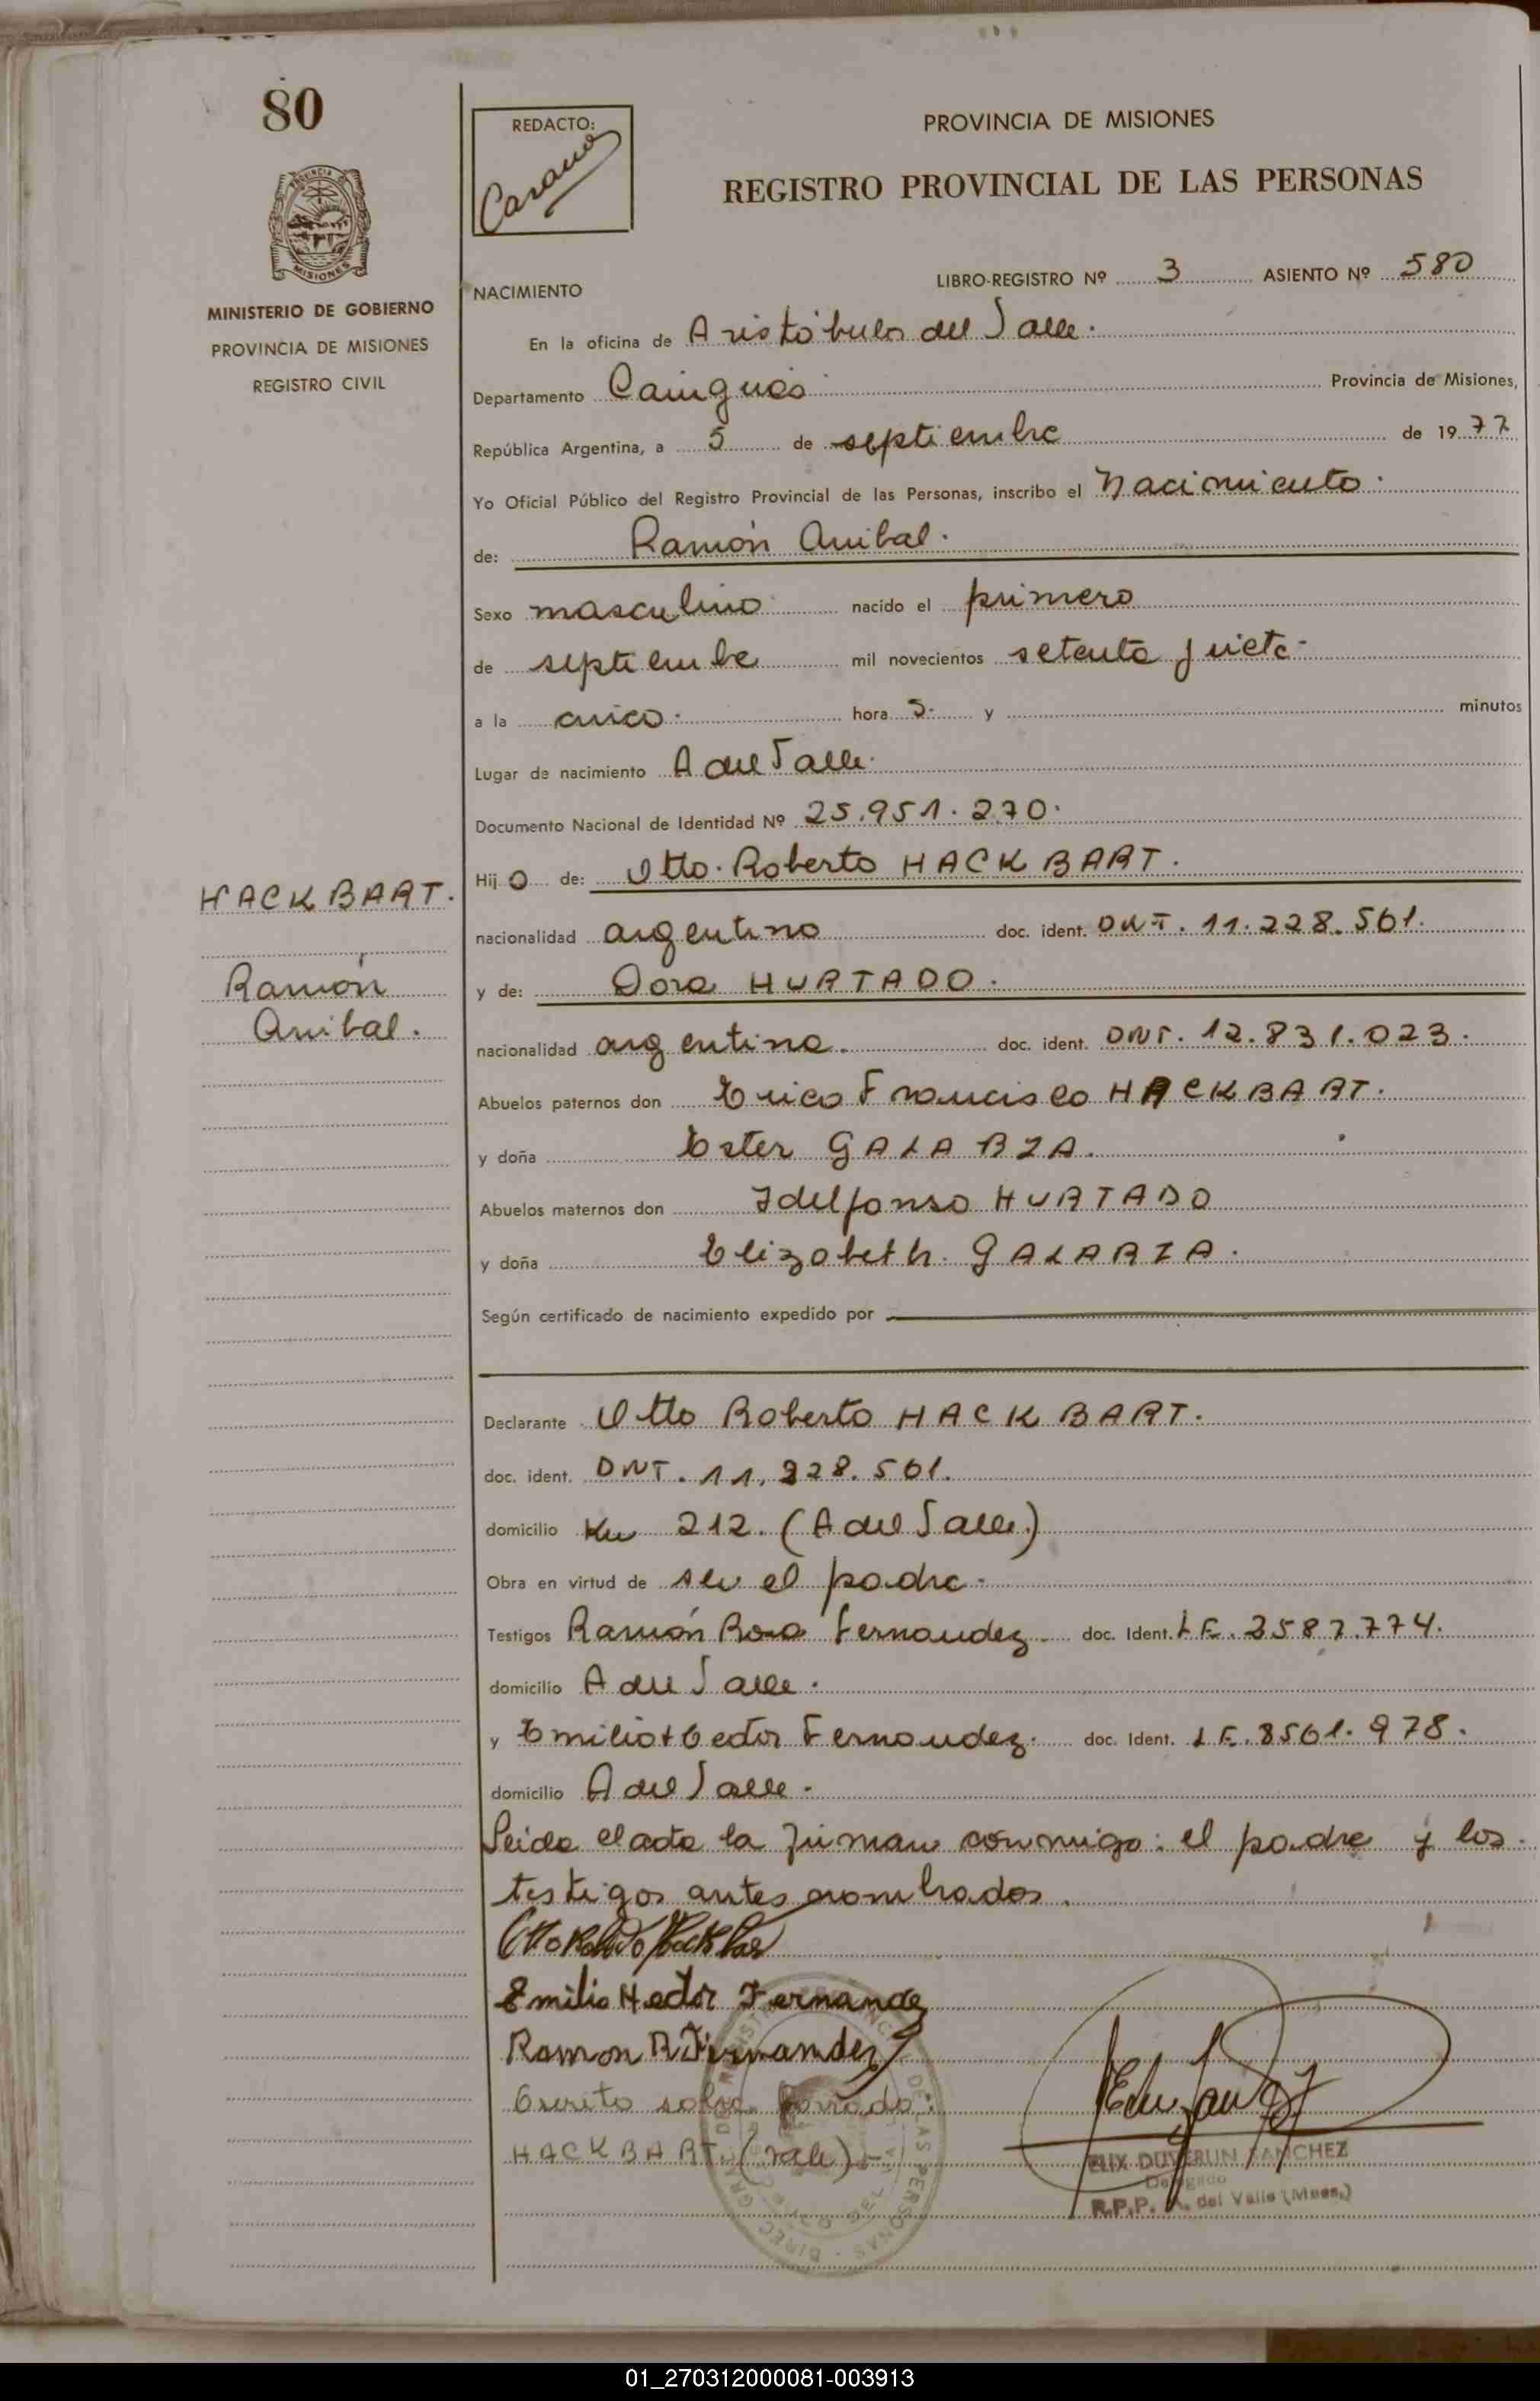 80
PROVINCIA DE
MISIONES
MINISTERIO DE GOBIERNO
PROVINCIA DE MISIONES
REGISTRO CIVIL
HACKBART.
Ramón
Anibal.
REDACTO:
PROVINCIA DE MISIONES
REGISTRO PROVINCIAL DE LAS PERSONAS
LIBRO-REGISTRO Nº 3 ASIENTO Nº 580
NACIMIENTO
En la oficina de Aristóbulo del Valle.
Departamento Cainguás Provincia de Misiones,
República Argentina, a 5 de septiembre de 1977
Yo Oficial Público del Registro Provincial de las Personas, inscribo el Nacimiento.
de: Ramón Anibal.
Sexo masculino nacido el primero
de septiembe mil novecientos setenta y siete
a la cinco. hora 5. y minutos
Lugar de nacimiento A del Valle.
Documento Nacional de Identidad Nº 25.951.270.
Hij o de: Otto Roberto HACKBART.
nacionalidad argentino doc. ident. DNI. 11.228.501.
y de: Dora HURTADO.
nacionalidad argentina. doc. ident. DNI. 12.831.023.
Abuelos paternos don Erico Francisco HACKBART.
y doña Ester GALARZA.
Abuelos maternos don Idelfonso HURTADO
y doña Elizabeth GALARZA.
Según certificado de nacimiento expedido por
Declarante Otto Roberto HACKBART.
doc. ident. DNI. 11.228.501.
domicilio Km 212. (A del Valle.)
Obra en virtud de ser el padre.
Testigos Ramón Rosa Fernandez doc. Ident. LE. 2587.774.
domicilio A del Valle.
y Emilio Hector Fernandez. doc. Ident. LE. 8501.978.
domicilio A del Valle.
Leida el acta la firman conmigo: el padre y los
testigos antes nombrados.
Emilio Hector Fernandez
Ramon R Fernandez
Escrito sobre borrado:
HACKBART. (vale)
SANCHEZ
Delegado
R.P.P. A. del Valle (Mnes.)
01_270312000081-003913